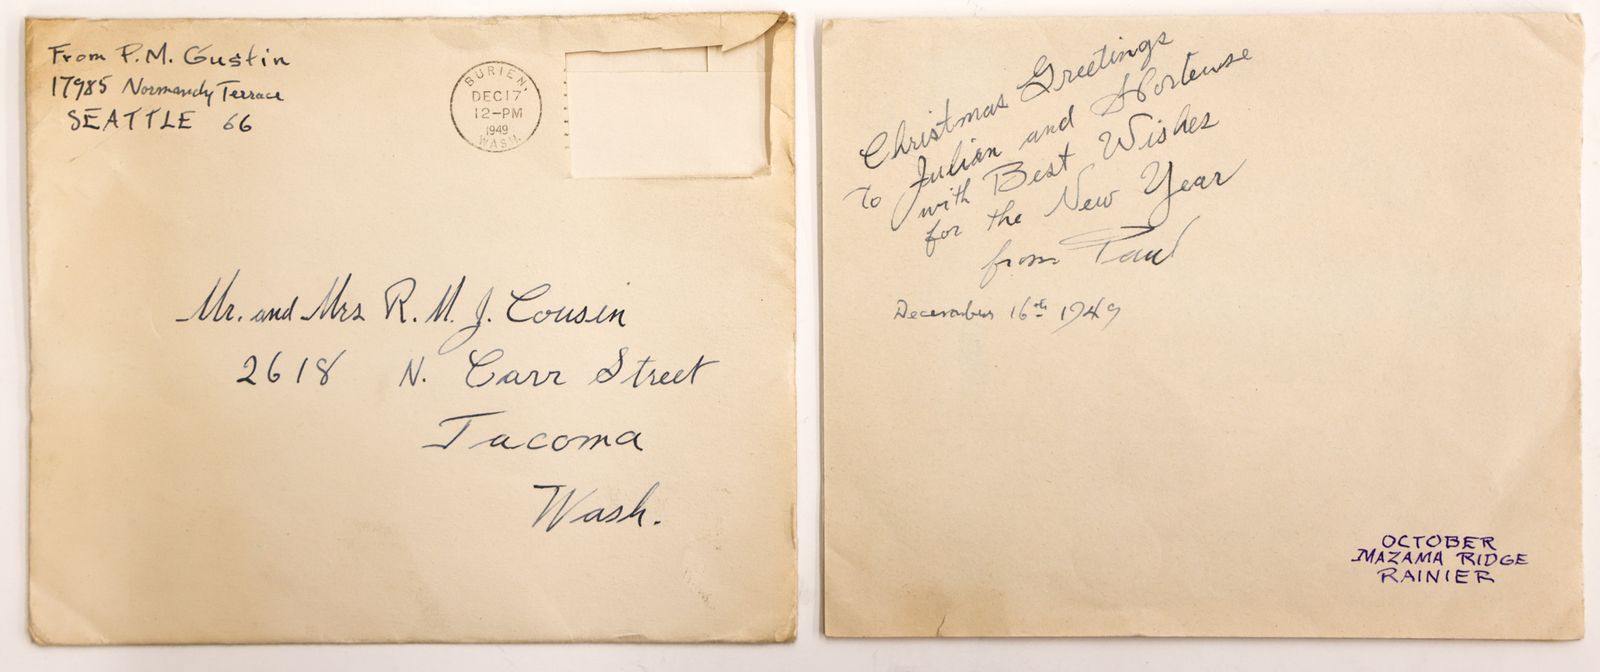 From P.M. Gustin
17985 Normandy Terrace
SEATTLE 66
BURIEN,
DEC 17
12-PM
1949
WASH.
Mr. and Mrs R. M. J. Cousin
2618 N. Carr Street
Tacoma
Wash.
Christmas Greetings
To Julian and Hortense
with Best Wishes
for the New Year
from Paul
December 16th 1949
OCTOBER
MAZAMA RIDGE
RAINIER